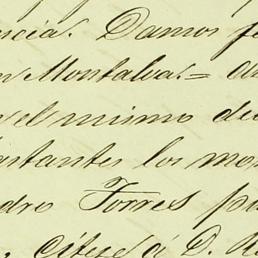 ncia. Damos fe
n Montalva.=
n el mismo
tantes los mon
dro Torres pa
Cítese á D. R